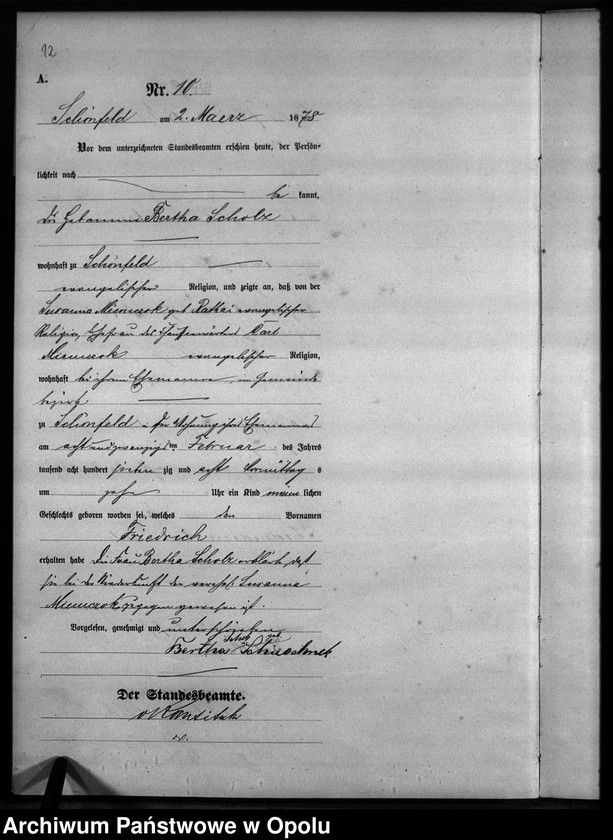 12
A.
Nr. 10.
Schönfeld am 2. Maerz 1878
Vor dem unterzeichneten Standesbeamten erschien heute, der Persön-
lichkeit nach
be kannt,
die Hebamme Bertha Scholz
wohnhaft zu Schönfeld
evangelischer Religion, und zeigte an, daß von der
Susanna Miemczok geb. evangelischer
Religion, Ehefrau des Carl
Miemczok evangelischer Religion,
wohnhaft bei ihrem Ehemanne, im Gemeinde
bezirk
zu Schönfeld in der Wohnung ihres Ehemannes
am achtundzwanzigsten Februar des Jahres
tausend acht hundert sieben zig und acht Vormittag s
um zehn Uhr ein Kind männ lichen
Geschlechts geboren worden sei, welches den Vornamen
Friedrich
erhalten habe Die Frau Bertha Scholz erklärt, daß
sie bei der Niederkunft der verehel. Susanna
Miemczok zugegen gewesen ist.
Vorgelesen, genehmigt und unterschrieben
Bertha Scholz geb.
Der Standesbeamte.
Archiwum Państwowe w Opolu